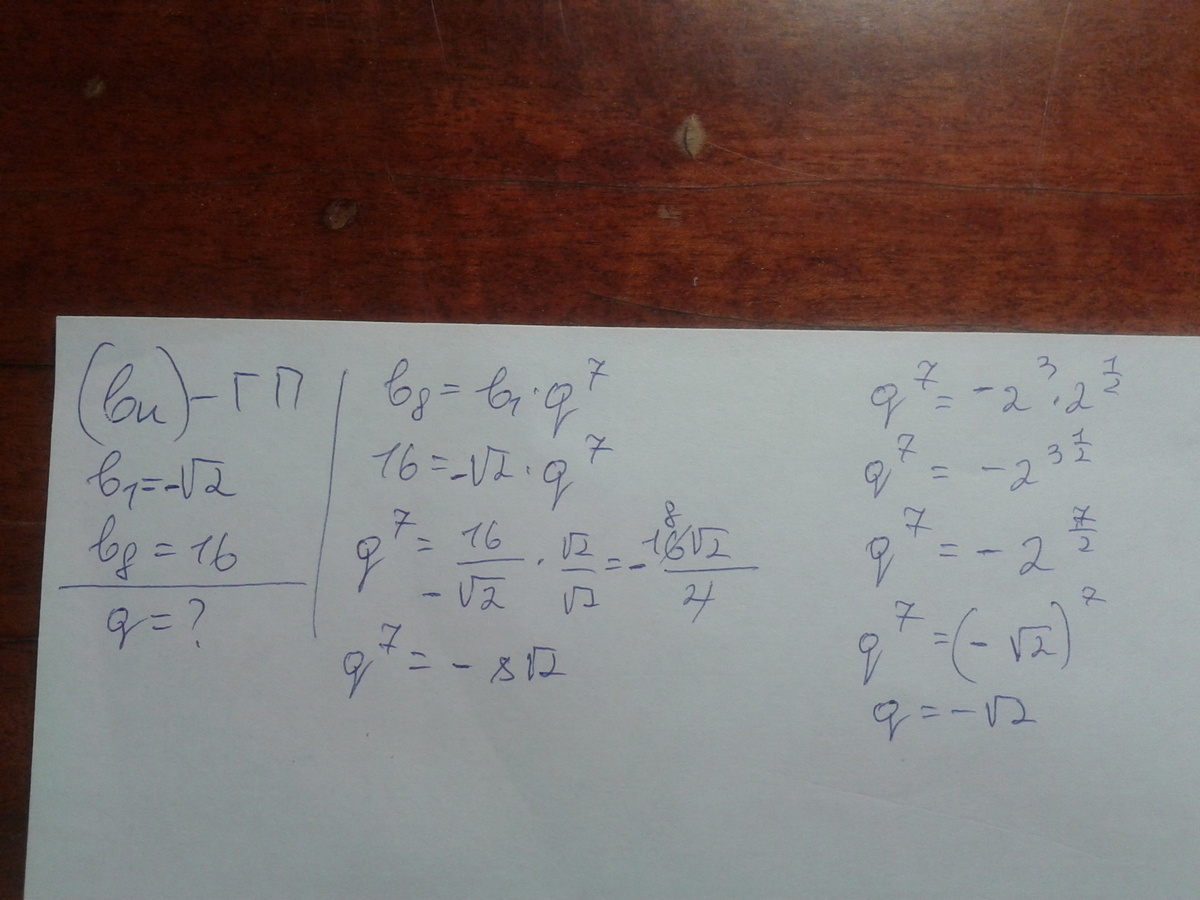 (bn) – ГП
b₁ = -√2
b₈ = 16
q = ?
b₈ = b₁ · q⁷
16 = -√2 · q⁷
q⁷ = 16/-√2 · √2/√2 = - 16√2/2 8
q⁷ = - 8√2
q⁷ = -2³ · 2^(1/2)
q⁷ = -2^(3 1/2)
q⁷ = -2^(7/2)
q⁷ = (-√2)⁷
q = -√2